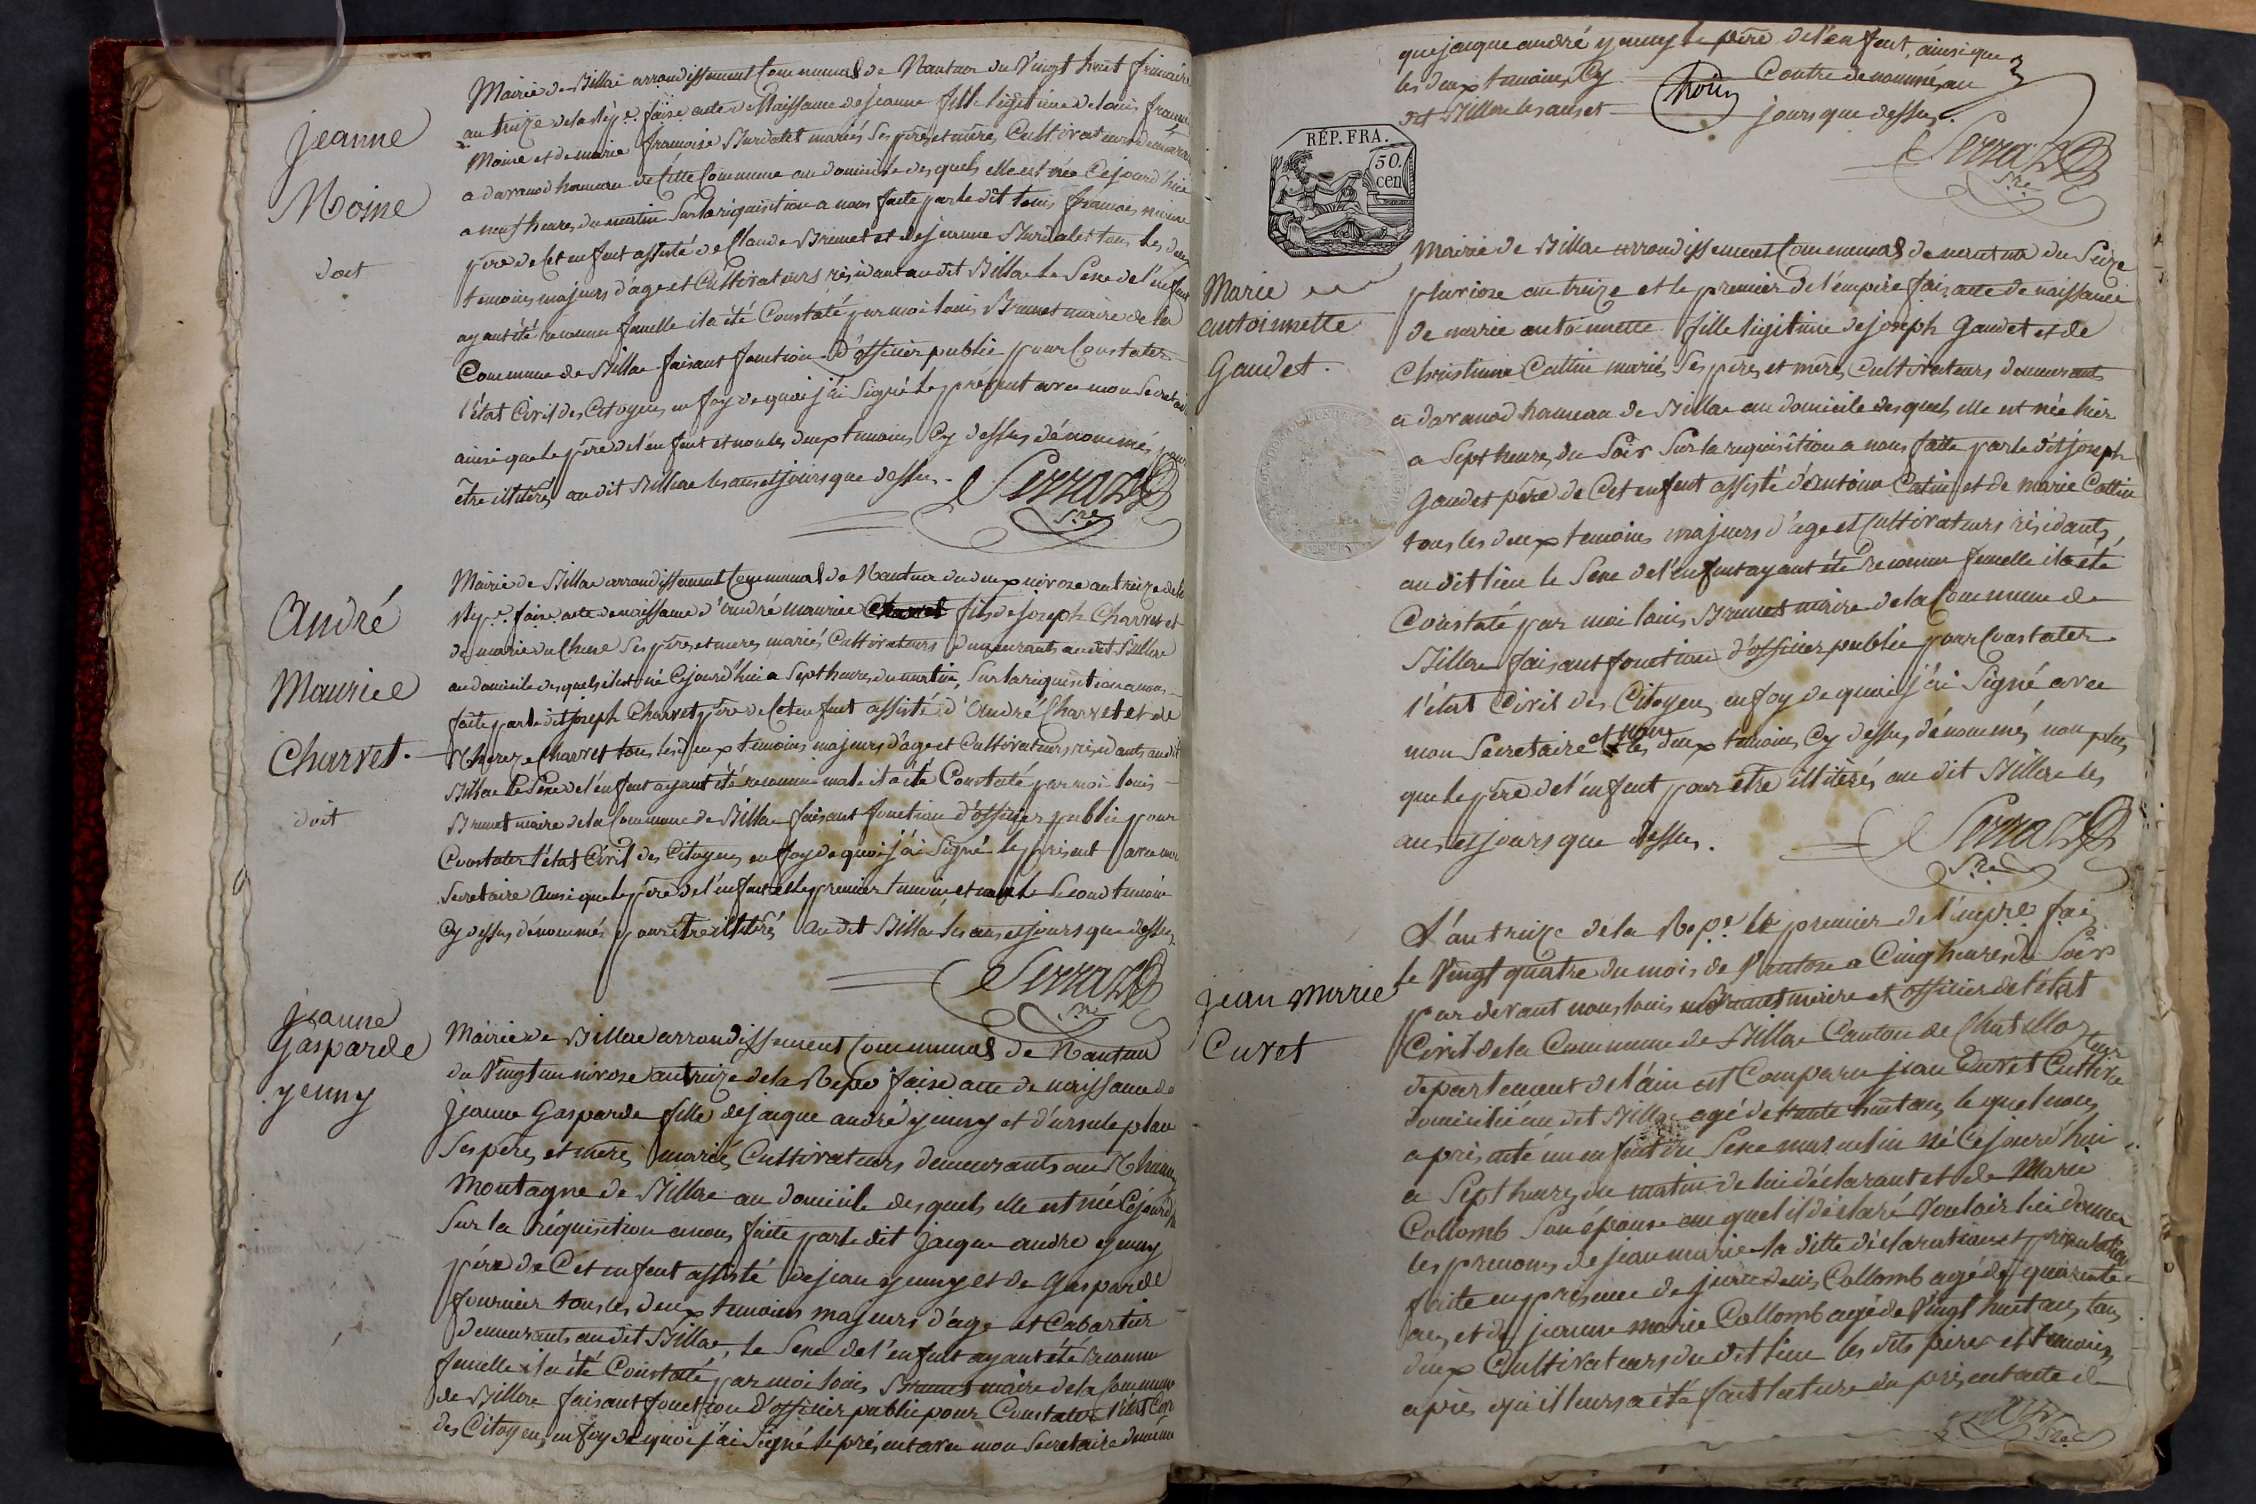 jeanne
Moine
doit
Mairie de Billiat arrondissement Communal de Nantua du Vingt huit frimaire
an treize de la Rép.e faise acte de Naissance de jeanne fille légitime de louis françois
Moine et de marie françoise Burdalet mariés Ses père et mère, Cultivateurs demeurant
a davanod hameau de Cette Commune au domicile des quels elle est née Cejourd'hui
a neuf heures du matin Sur la réquisition a nous faite par le dit louis françois moine
père de Cet enfant assisté de Claude Brunet et de jeanne Burdalet tous les deux
temoins majeurs d'age et Cultivateurs résidant au dit Billiat le Sexe de l'enfant
ayant été reconnu femelle il a été Constaté par moi louis Brunet maire de la
Commune de Billiat faisant fonction d'officier public pour Constater
l'état Civil des Citoyens en foy de quoi j'ai Signé le présent avec mon Secretaire
ainsi que le père de l'enfant et non les deux temoins Cy dessus dénommés pour
être illitérés au dit Billiat les ans et jours que dessus.
Serraz
S.re
André
Mauriee
Charvet.
doit
Mairie de Billiat arrondissement Communal de Nantua du deux nivose an treize de la
Rép.e faise acte de naissance d'andré maurice Charvet fils de joseph Charvet et
de marie du Chene Ses père et meres mariés Cultivateurs demeurants au dit Billiat
au domicile desquels il est né Cejourd'hui a Sept heures du matin, Sur la réquisition a nous
faite par le dit joseph Charvet père de Cet enfant assisté d'André Charvet et de
Thereze Charvet tous les deux temoins majeurs d'age et Cultivateurs résidants au dit
Billiat le Sexe de l'enfant ayant été reconnu male il a été Constaté par moi louis
Brunet maire de la Commune de Billiat faisant fonction d'officier public pour
Constater l'état Civil des Citoyens en foy de quoi j'ai Signé le present avec mon
Secretaire Ainsi que le père de l'enfant et le premier temoin et non le Second temoin
Cy dessus dénommés pour être illitérés Au dit Billiat les ans et jours que dessus
Serraz
S.re
jeanne
Gasparde
yenny
Mairie de Billiat arrondissement Communal de Nantua
du Vingt un nivose an treize de la Repe faise acte de naissance de
jeanne Gasparde fille de jacque andré yenny et d'ursule
Ses père et mère mariés Cultivateurs demeurants au
Montagne de Billiat au domicile des quels elle est née Cejourd'hui
Sur la réquisition a nous faite par le dit jacque andré yenny
père de Cet enfant assisté de jean yenny et de Gasparde
fournier tous les deux temoins majeurs d'age et Cabartier
demeurants au dit Billiat, le Sexe de l'enfant ayant été reconnu
femelle il a été Constaté par moi louis Brunet maire de la Commune
de Billiat faisant fonction d'officier public pour Constater l'état Civil
des Citoyens, en foy de quoi j'ai Signé le présent avec mon Secretaire de même
que jacque andré yenny le père de l'enfant, ainsi que
les deux temoins Cy Contre dénommés au
dit Billiat les ans et jours que dessus.
Serraz
S.re
RÉP. FRA.
50.
cen
Marie
antoinette
Gaudet.
Mairie de Billiat arrondissement Communal de nantua du Seize
pluviose an treize et le premier de l'empire fais. acte de naissance
de marie antoinette fille légitime de joseph Gaudet et de
Christinne Cattin mariés Ses père et mère, Cultivateurs demeurants
a davanod hameau de Billiat au domicile des quels elle est née hier
a Sept heures du Soir Sur la requisition a nous faite par le dit joseph
Gaudet père de Cet enfant assisté d'antoine Catin et de marie Cattin
tous les deux temoins majeurs d'age et Cultivateurs résidants
au dit lieu le Sexe de l'enfant ayant été reconnu femelle il a été
Constaté par moi louis Brunet maire de la Commune de
Billiat faisant fonction d'officier public pour Constater
l'état Civil des Citoyens, en foy de quoi j'ai Signé avec
mon Secretaire et non les deux temoins Cy dessus dénommés non plus
que le père de l'enfant pour être illitérés au dit Billiat les
ans et jours que dessus.
Serraz
S.re
jean Marie
Curet
L'an treize de la Rep.e le premier de l'empire fais
le Vingt quatre du mois de Ventose a Cinq heures du Soir
par devant nous louis Brunet maire et officier de l'état
Civil de la Commune de Billiat Canton de Chatillon
departement de l'ain est Comparu jean Curet Cultivateur
domicilié au dit Billiat agé de trente huit ans, le quel nous
a présenté un enfant du Sexe masculin né Cejourd'hui
a Sept heures du matin de lui déclarant et de Marie
Collomb Son épouse au quel il déclaré Vouloir lui donner
les prenoms de jean marie la ditte déclaration et présentation
faite en présence de Collomb agé de quarante
ans, et de jeanne marie Collomb agé de Vingt huit ans, tous
deux Cultivateurs du dit lieu les dits pères et temoins
après qu'il leurs a été fait lecture du présent acte il
S.re